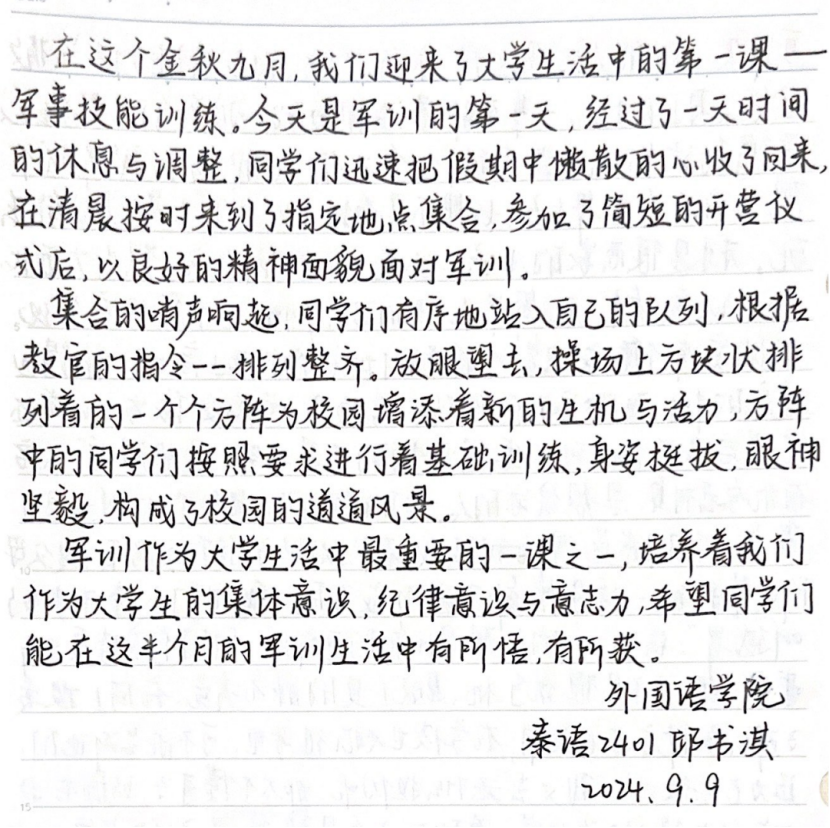 在这个金秋九月,我们迎来了大学生活中的第一课—
军事技能训练。今天是军训的第一天,经过了一天时间
的休息与调整,同学们迅速把假期中懒散的心收了回来,
在清晨按时来到了指定地点集合,参加了简短的开营仪
式后,以良好的精神面貌面对军训。
集合的哨声响起,同学们有序地站入自己的队列,根据
教官的指令一一排列整齐。放眼望去,操场上方块状排
列着的一个个方阵为校园增添着新的生机与活力,方阵
中的同学们按照要求进行着基础训练,身姿挺拔,眼神
坚毅,构成了校园的道道风景。
军训作为大学生活中最重要的一课之一,培养着我们
作为大学生的集体意识,纪律意识与意志力,希望同学们
能在这半个月的军训生活中有所悟,有所获。
外国语学院
泰语2401 邱书淇
2024.9.9